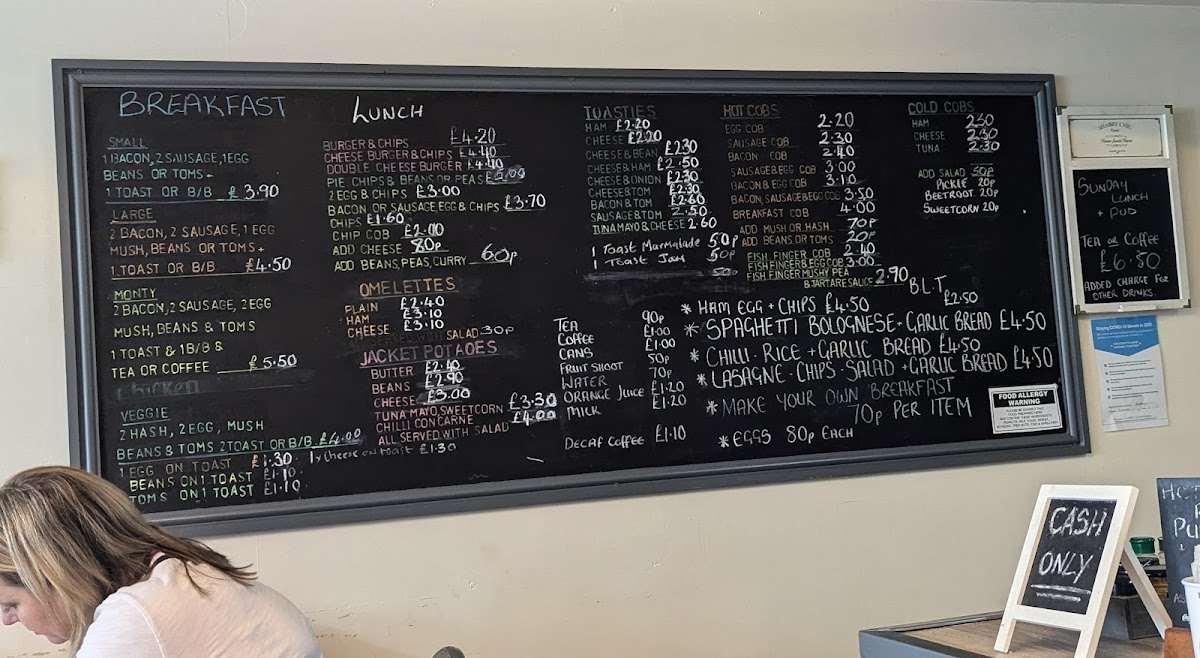 BREAKFAST
SMALL
1 BACON, 2 SAUSAGE, 1 EGG
BEANS OR TOMS +
1 TOAST OR B/B £3.90
LARGE
2 BACON, 2 SAUSAGE, 1 EGG
MUSH, BEANS OR TOMS +
1 TOAST OR B/B £4.50
MONTY
2 BACON, 2 SAUSAGE, 2 EGG
MUSH, BEANS & TOMS
1 TOAST & 1 B/B &
TEA OR COFFEE £5.50
Chicken
VEGGIE
2 HASH, 2 EGG, MUSH
BEANS & TOMS 2 TOAST OR B/B £4.00
1 EGG ON TOAST £1.30 1 x Cheese on toast £1.30
BEANS ON 1 TOAST £1.10
TOMS ON 1 TOAST £1.10
LUNCH
BURGER & CHIPS £4.20
CHEESE BURGER & CHIPS £4.40
DOUBLE CHEESE BURGER £4.40
PIE CHIPS & BEANS OR PEAS £5.00
2 EGG & CHIPS £3.00
BACON OR SAUSAGE EGG & CHIPS £3.70
CHIPS £1.60
CHIP COB £2.00
ADD CHEESE 80p
ADD BEANS, PEAS, CURRY 60p
OMELETTES
PLAIN £2.40
HAM £3.10
CHEESE £3.10
SALAD 30p
JACKET POTADES
BUTTER £2.40
BEANS £2.90
CHEESE £3.00
TUNA MAYO, SWEETCORN £3.30
CHILLI CON CARNE £4.00
ALL SERVED WITH SALAD
TOASTIES
HAM £2.20
CHEESE £2.20
CHEESE & BEAN £2.30
CHEESE & HAM £2.50
CHEESE & ONION £2.30
CHEESE & TOM £2.30
BACON & TOM £2.60
SAUSAGE & TOM 2.50
TUNA MAYO & CHEESE 2.60
1 Toast Marmalade 50p
1 Toast Jam 50p
50
TEA 90p
Coffee £1.00
CANS £1.00
FRUIT SHOOT 50p
WATER 70p
ORANGE Juice £1.20
MILK £1.20
Decaf Coffee £1.10
HOT COBS
EGG COB 2.20
SAUSAGE COB 2.30
BACON COB 2.40
SAUSAGE & EGG COB 3.00
BACON & EGG COB 3.10
BACON, SAUSAGE & EGG COB 3.50
BREAKFAST COB 4.00
ADD MUSH OR HASH 70p
ADD BEANS OR TOMS 20p
FISH FINGER COB 2.40
FISH FINGER & EGG COB 3.00
FISH FINGER MUSHY PEA
& TARTARE SAUCE 2.90
B.L.T £2.50
COLD COBS
HAM 2.30
CHEESE 2.30
TUNA 2.30
ADD SALAD 30p
PICKLE 20p
BEETROOT 20p
SWEETCORN 20p
* HAM EGG + CHIPS £4.50
* SPAGHETTI BOLOGNESE + GARLIC BREAD £4.50
* CHILLI. RICE + GARLIC BREAD £4.50
* LASAGNE. CHIPS. SALAD + GARLIC BREAD £4.50
* MAKE YOUR OWN BREAKFAST
70p PER ITEM
* EGGS 80p EACH
FOOD ALLERGY
WARNING
SUNDAY
LUNCH
+ PUD
TEA OR COFFEE
£6.50
ADDED CHARGE FOR
OTHER DRINKS.
CASH
ONLY